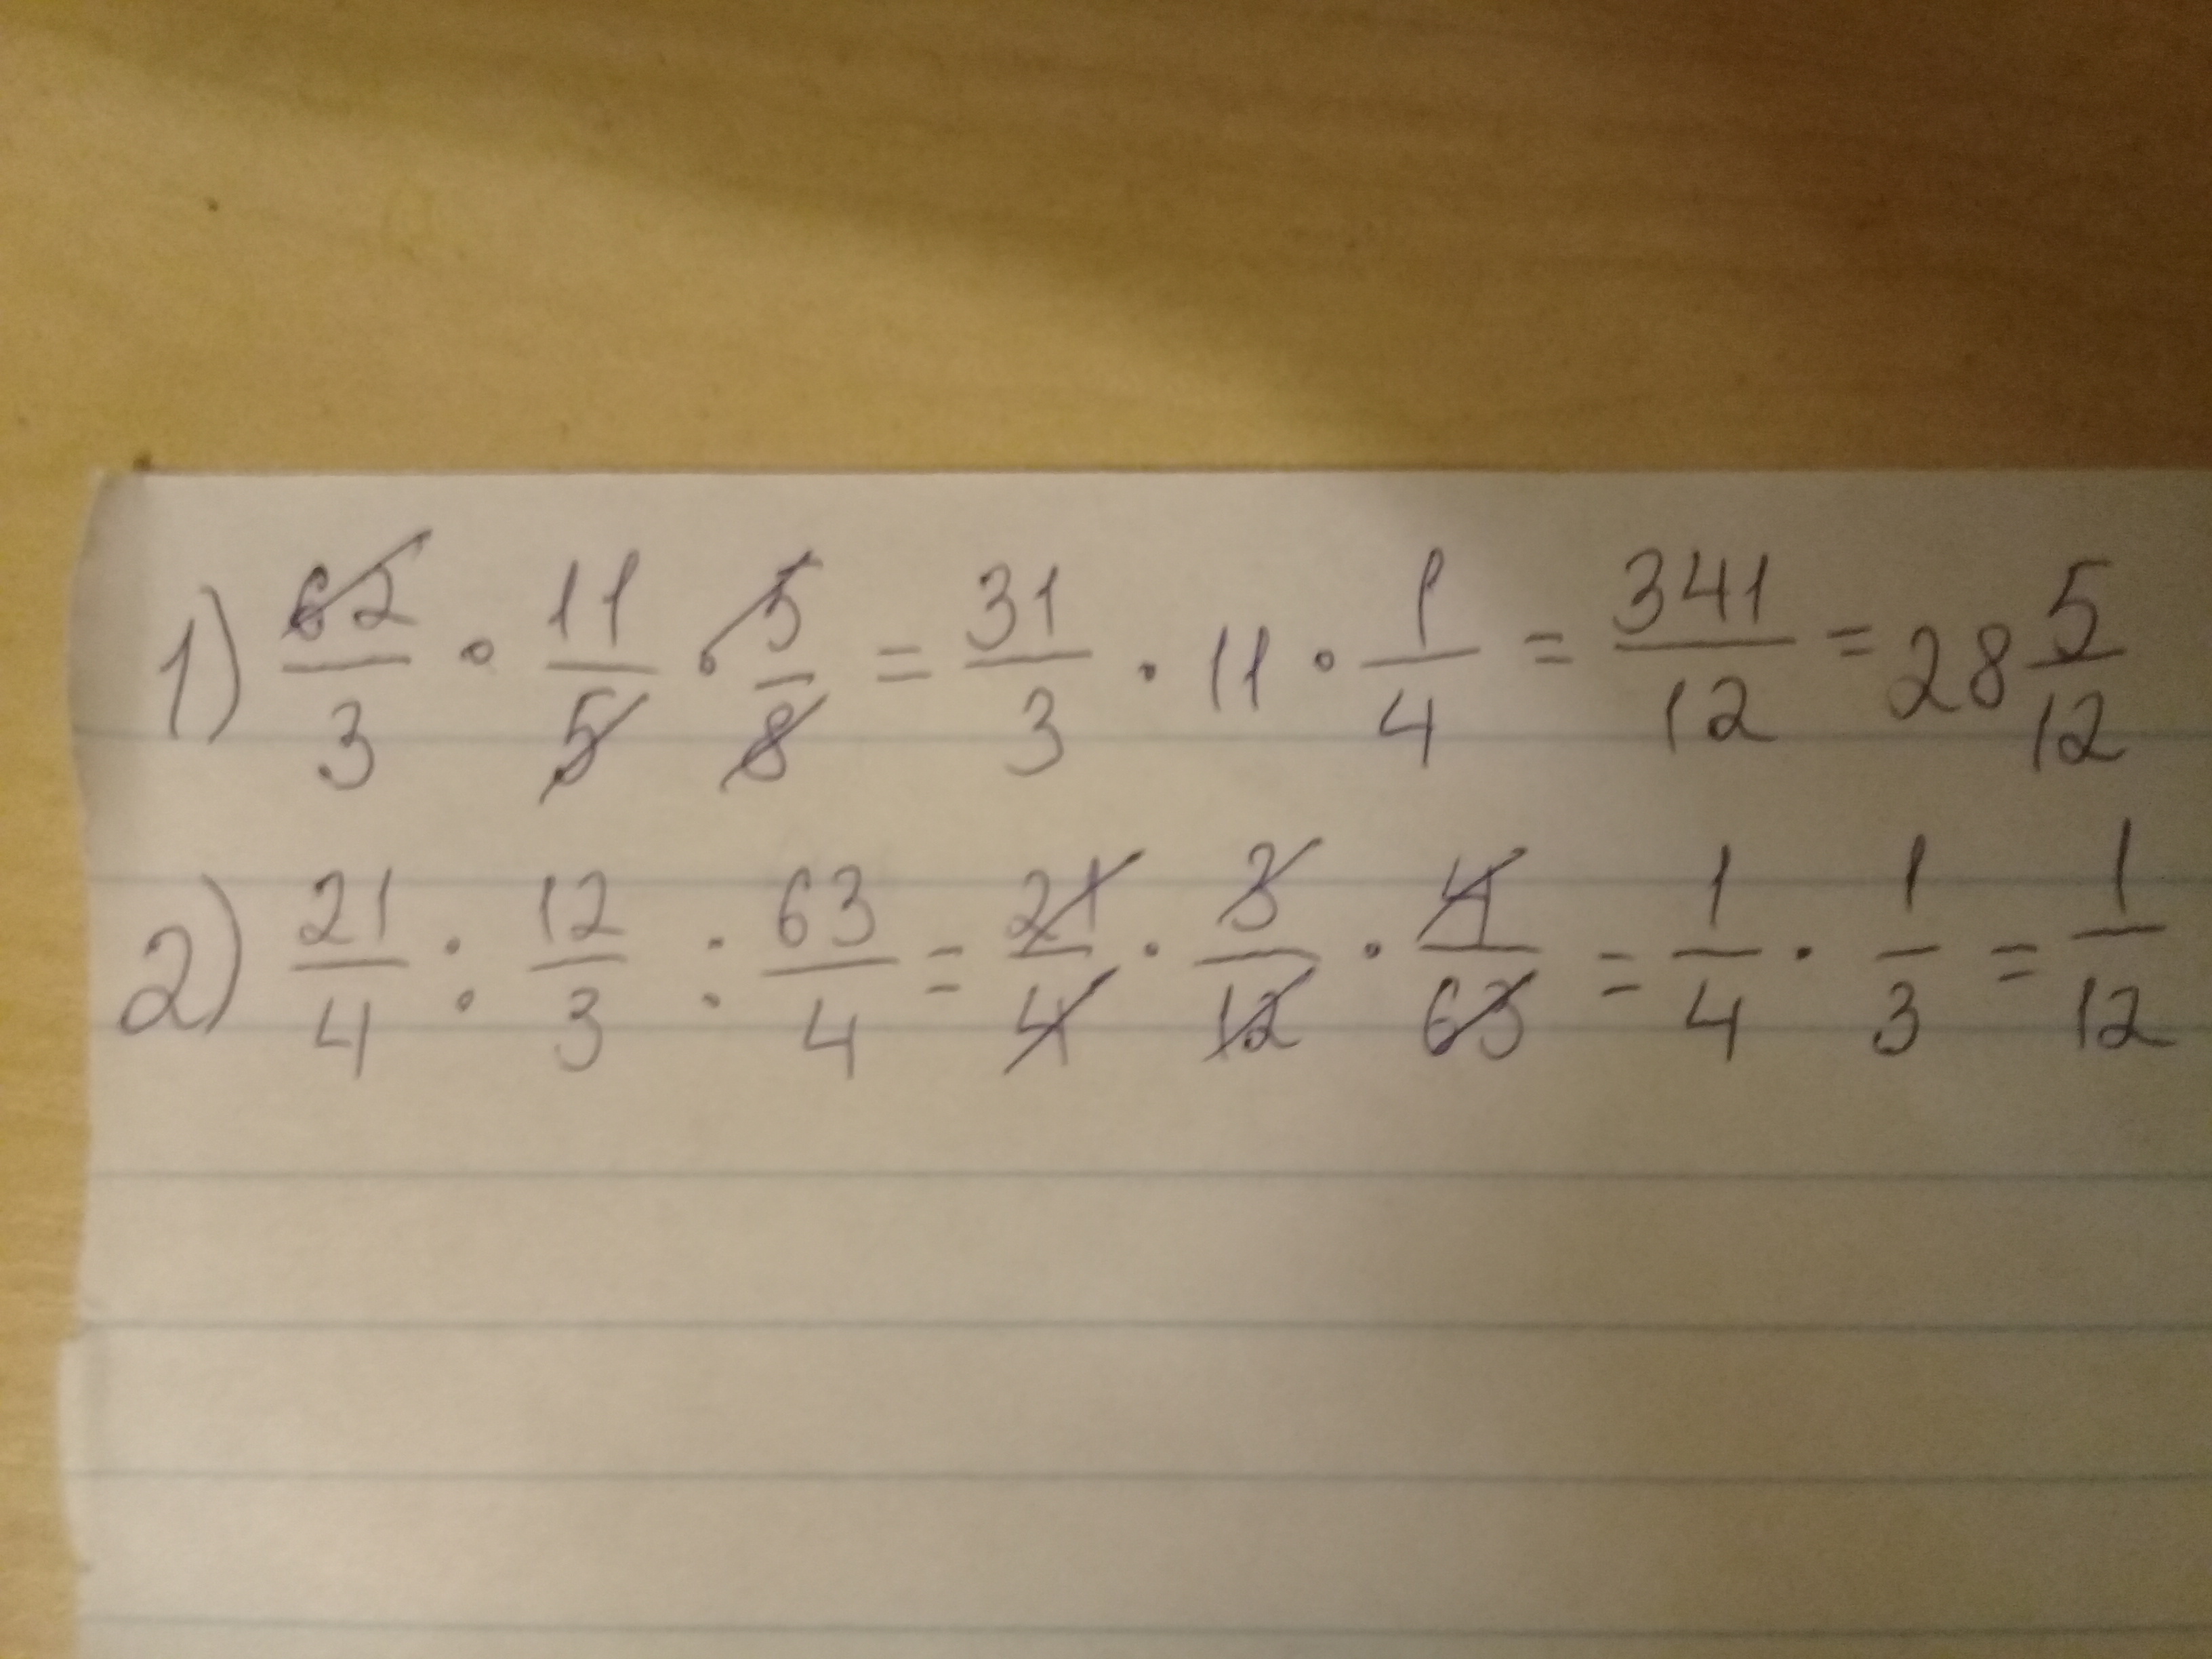 1) 62/3 · 11/5 · 5/8 = 31/3 · 11 · 1/4 = 341/12 = 28 5/12
2) 21/4 : 12/3 : 63/4 = 21/4 · 3/12 · 4/63 = 1/4 · 1/3 = 1/12